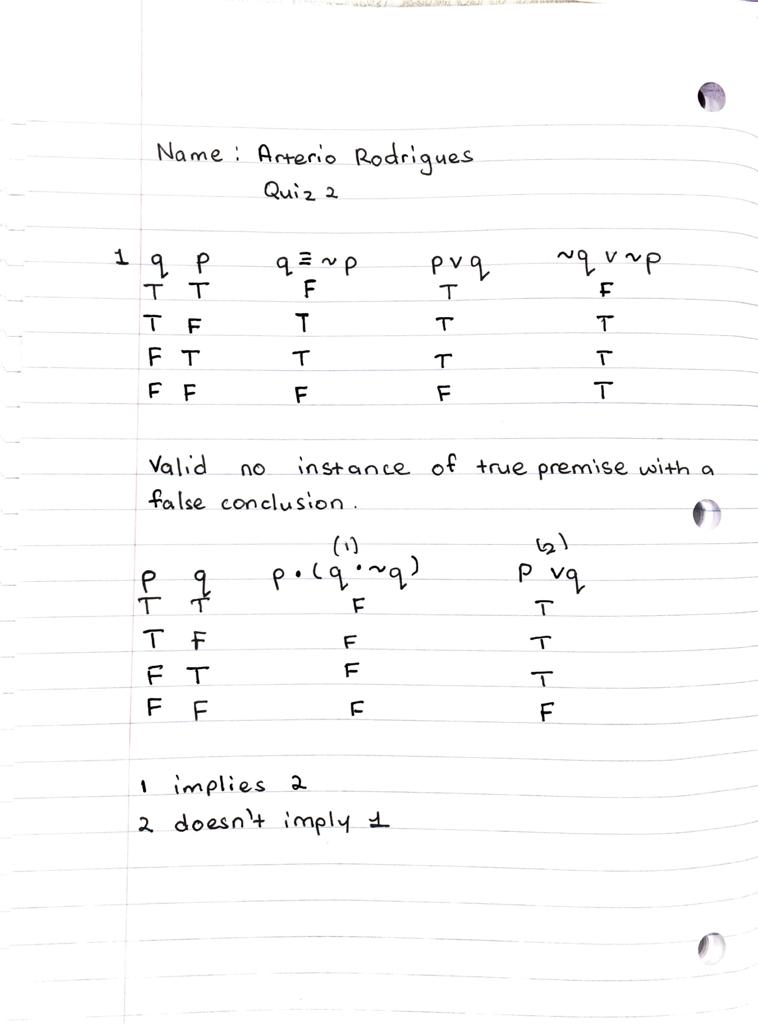 Name: Arterio Rodrigues
Quiz 2
1 q p q ≡ ~p p v q ~q v ~p
T T F T F
T F T T T
F T T T T
F F F F T
Valid no instance of true premise with a
false conclusion.
(1) (2)
p q p • (q • ~q) p v q
T T F T
T F F T
F T F T
F F F F
1 implies 2
2 doesn't imply 1